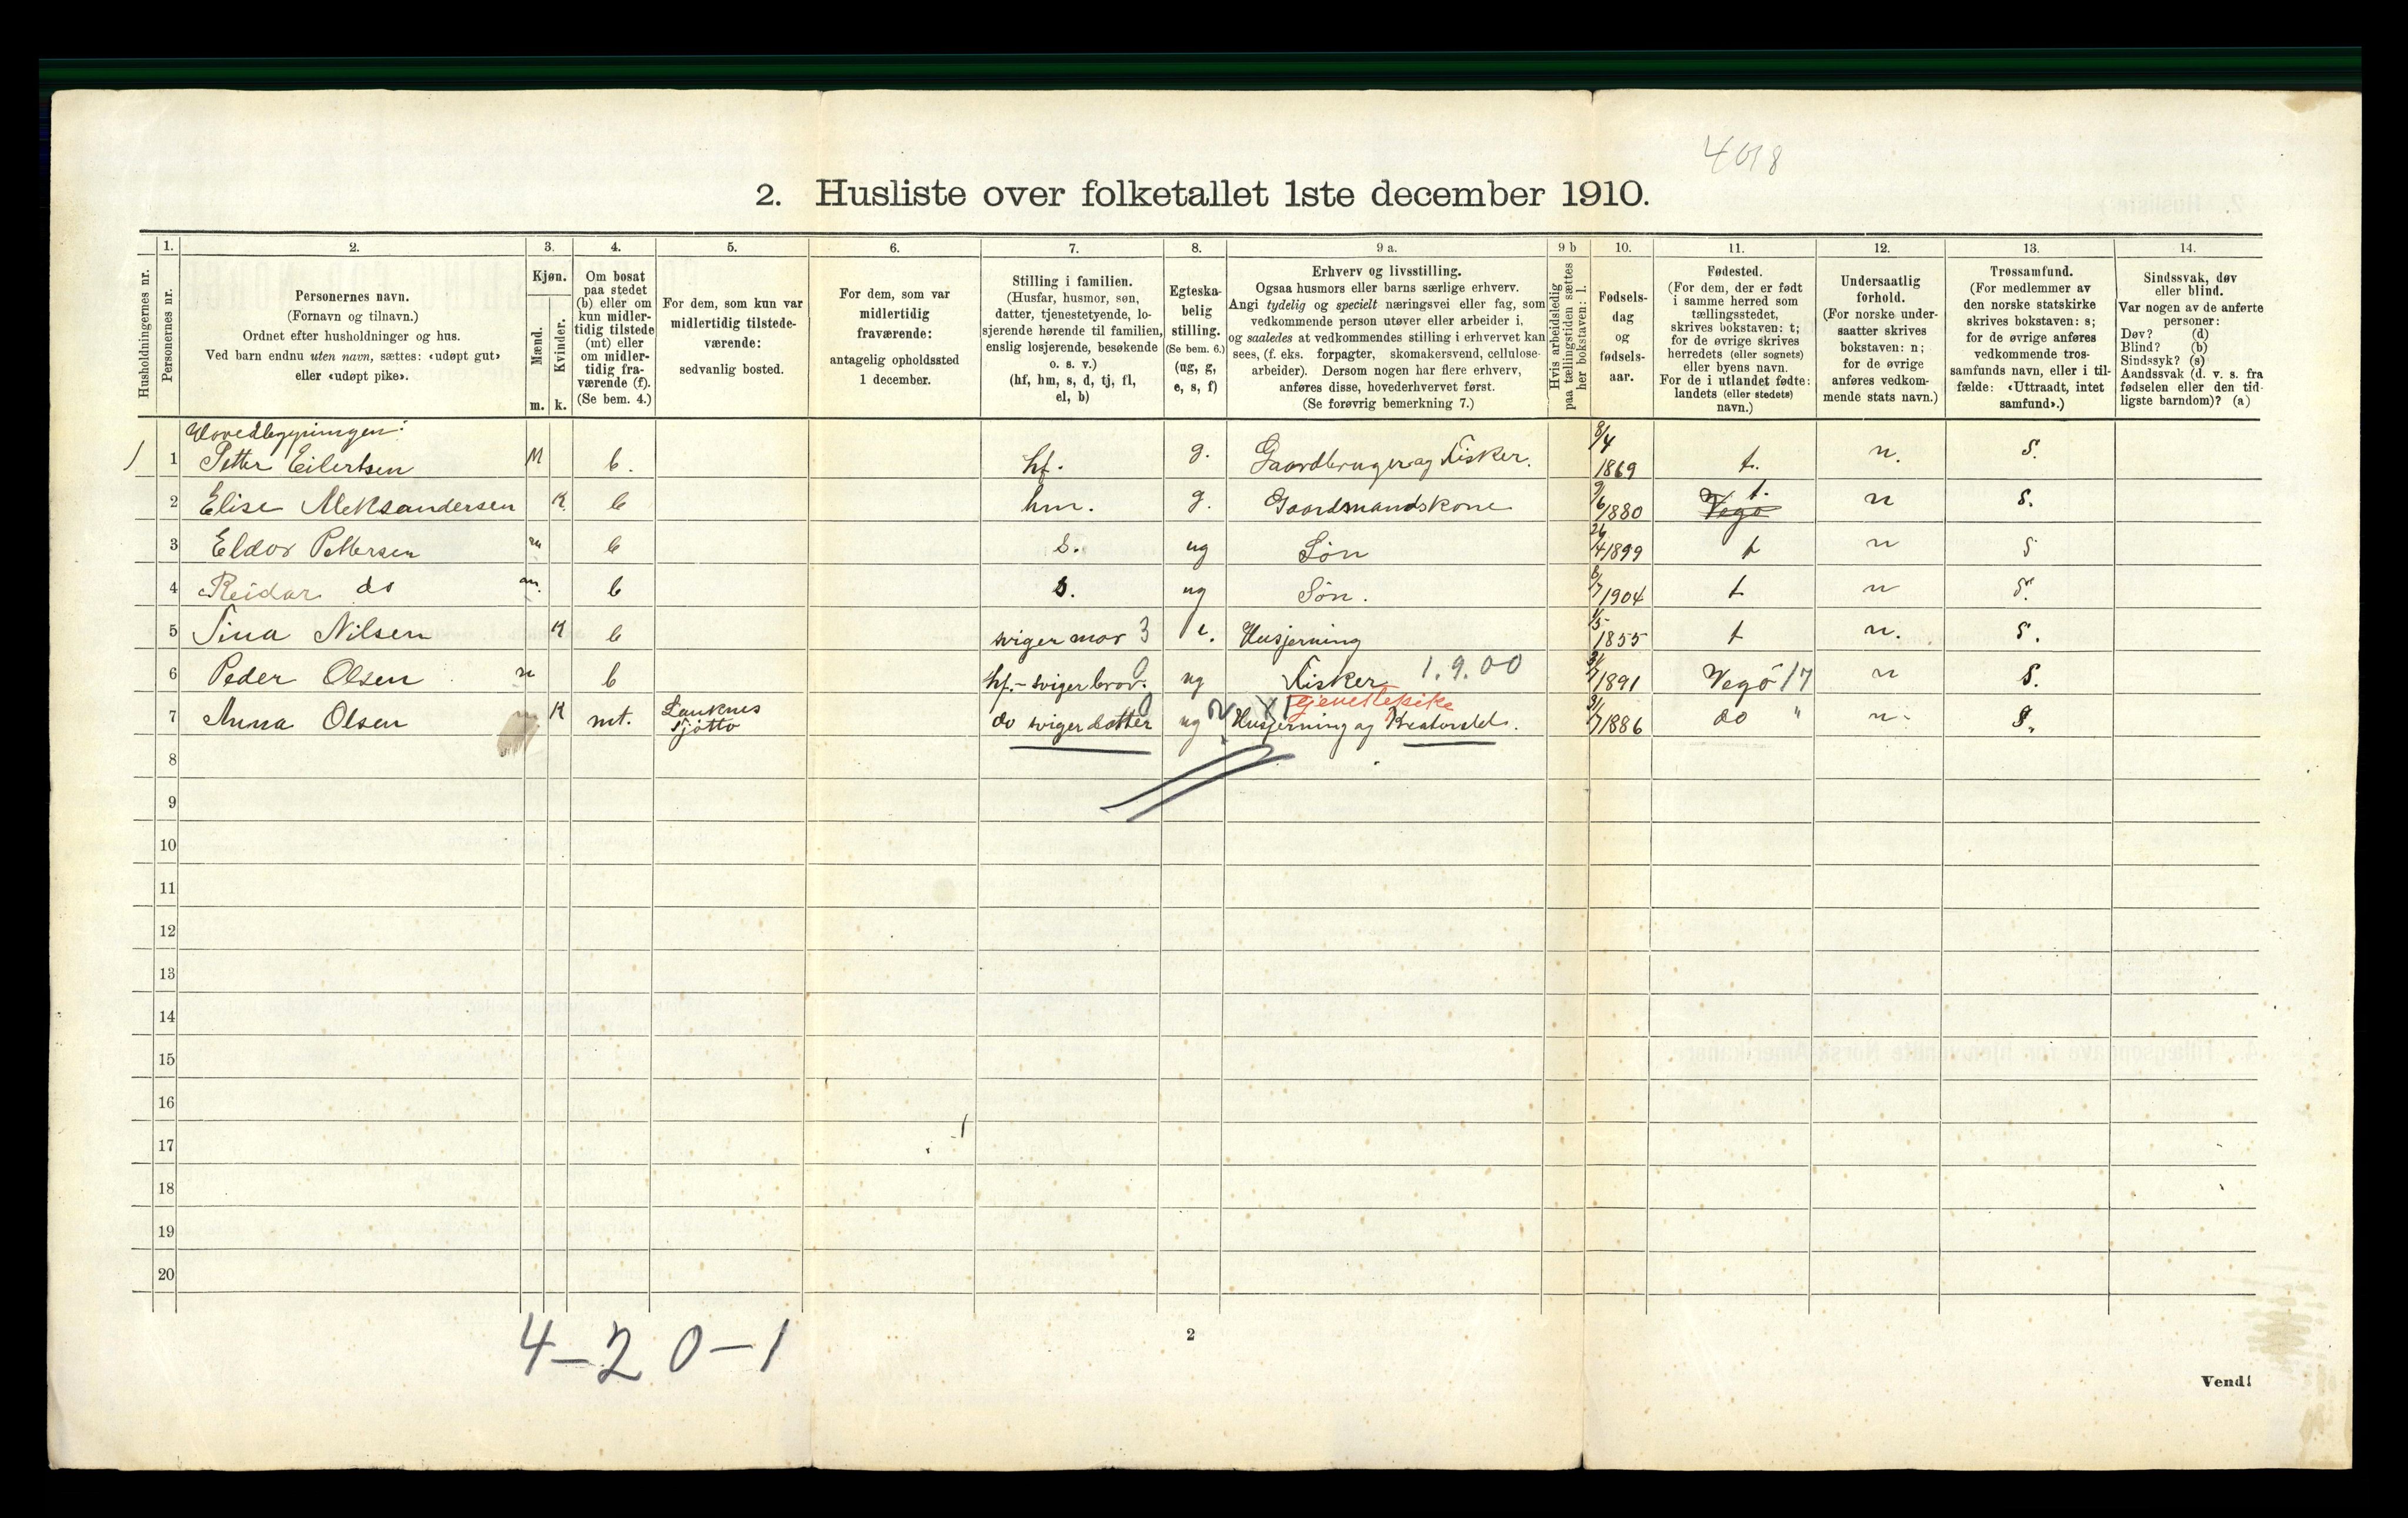 4018
2. Husliste over folketallet 1ste december 1910.
Husholdningernes nr.
1.
Personernes nr.
2.
Personernes navn.
(Fornavn og tilnavn.)
Ordnet efter husholdninger og hus.
Ved barn endnu uten navn, sættes: «udøpt gut»
eller «udøpt pike».
3.
Kjøn.
Mænd.
Kvinder.
m. k.
4.
Om bosat
paa stedet
(b) eller om
kun midler-
tidig tilstede
(mt) eller
om midler-
tidig fra-
værende (f).
(Se bem. 4.)
5.
For dem, som kun var
midlertidig tilstede-
værende:
sedvanlig bosted.
6.
For dem, som var
midlertidig
fraværende:
antagelig opholdssted
1 december.
7.
Stilling i familien.
(Husfar, husmor, søn,
datter, tjenestetyende, lo-
sjerende hørende til familien,
enslig losjerende, besøkende
o. s. v.)
(hf, hm, s, d, tj, fl,
el, b)
8.
Egteska-
belig
stilling.
(Se bem. 6.)
(ug, g,
e, s, f)
9 a.
Erhverv og livsstilling.
Ogsaa husmors eller barns særlige erhverv.
Angi tydelig og specielt næringsvei eller fag, som
vedkommende person utøver eller arbeider i,
og saaledes at vedkommendes stilling i erhvervet kan
sees, (f. eks. forpagter, skomakersvend, cellulose-
arbeider). Dersom nogen har flere erhverv,
anføres disse, hovederhvervet først.
(Se forøvrig bemerkning 7.)
9 b
Hvis arbeidsledig
paa tællingstiden sættes
her bokstaven: l.
10.
Fødsels-
dag
og
fødsels-
aar.
11.
Fødested.
(For dem, der er født
i samme herred som
tællingsstedet,
skrives bokstaven: t;
for de øvrige skrives
herredets (eller sognets)
eller byens navn.
For de i utlandet fødte:
landets (eller stedets)
navn.)
12.
Undersaatlig
forhold.
(For norske under-
saatter skrives
bokstaven: n;
for de øvrige
anføres vedkom-
mende stats navn.)
13.
Trossamfund.
(For medlemmer av
den norske statskirke
skrives bokstaven: s;
for de øvrige anføres
vedkommende tros-
samfunds navn, eller i til-
fælde: «Uttraadt, intet
samfund».)
14.
Sindssvak, døv
eller blind.
Var nogen av de anførte
personer:
Døv? (d)
Blind? (b)
Sindssyk? (s)
Aandssvak (d. v. s. fra
fødselen eller den tid-
ligste barndom)? (a)
Hovedbygningen:
1 1 Petter Eilertsen M b. hf. g. Gaardbruger og Fisker. 8/4 1869 t. n. S.
2 Elise Aleksandersen K b hm. g. Gaardmandskone 9/6 1880 Vegø t. n s.
3 Eldor Pettersen m b s. ug Søn 26/4 1899 t n s
4 Reidar do m. b s. ug Søn. 8/7 1904 t n s.
5 Tina Nilsen K b svigermor 3 e. Husjerning 1/5 1855 t n. s.
6 Peder Olsen m b hf.- svigerbror. 0 ug Fisker 1.9.00 1891 Vegö 17 n s.
7 Anna Olsen K mt. Tjøtto do svigerdatter 0 ug Tjenestepike Husjerning og 1886 do " n. s.
8
9
10
11
12
13
14
15
16
17
18
19
20
4 - 2 0 - 1
2
Vend!